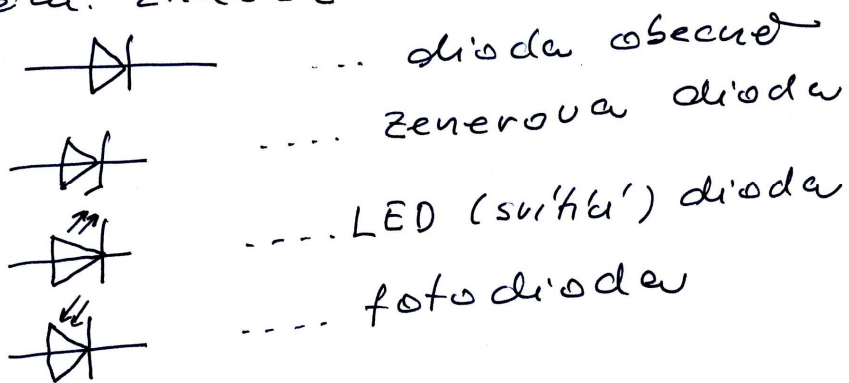 ... dioda obecně
.... Zenerova dioda
.... LED (svítící) dioda
.... fotodioda